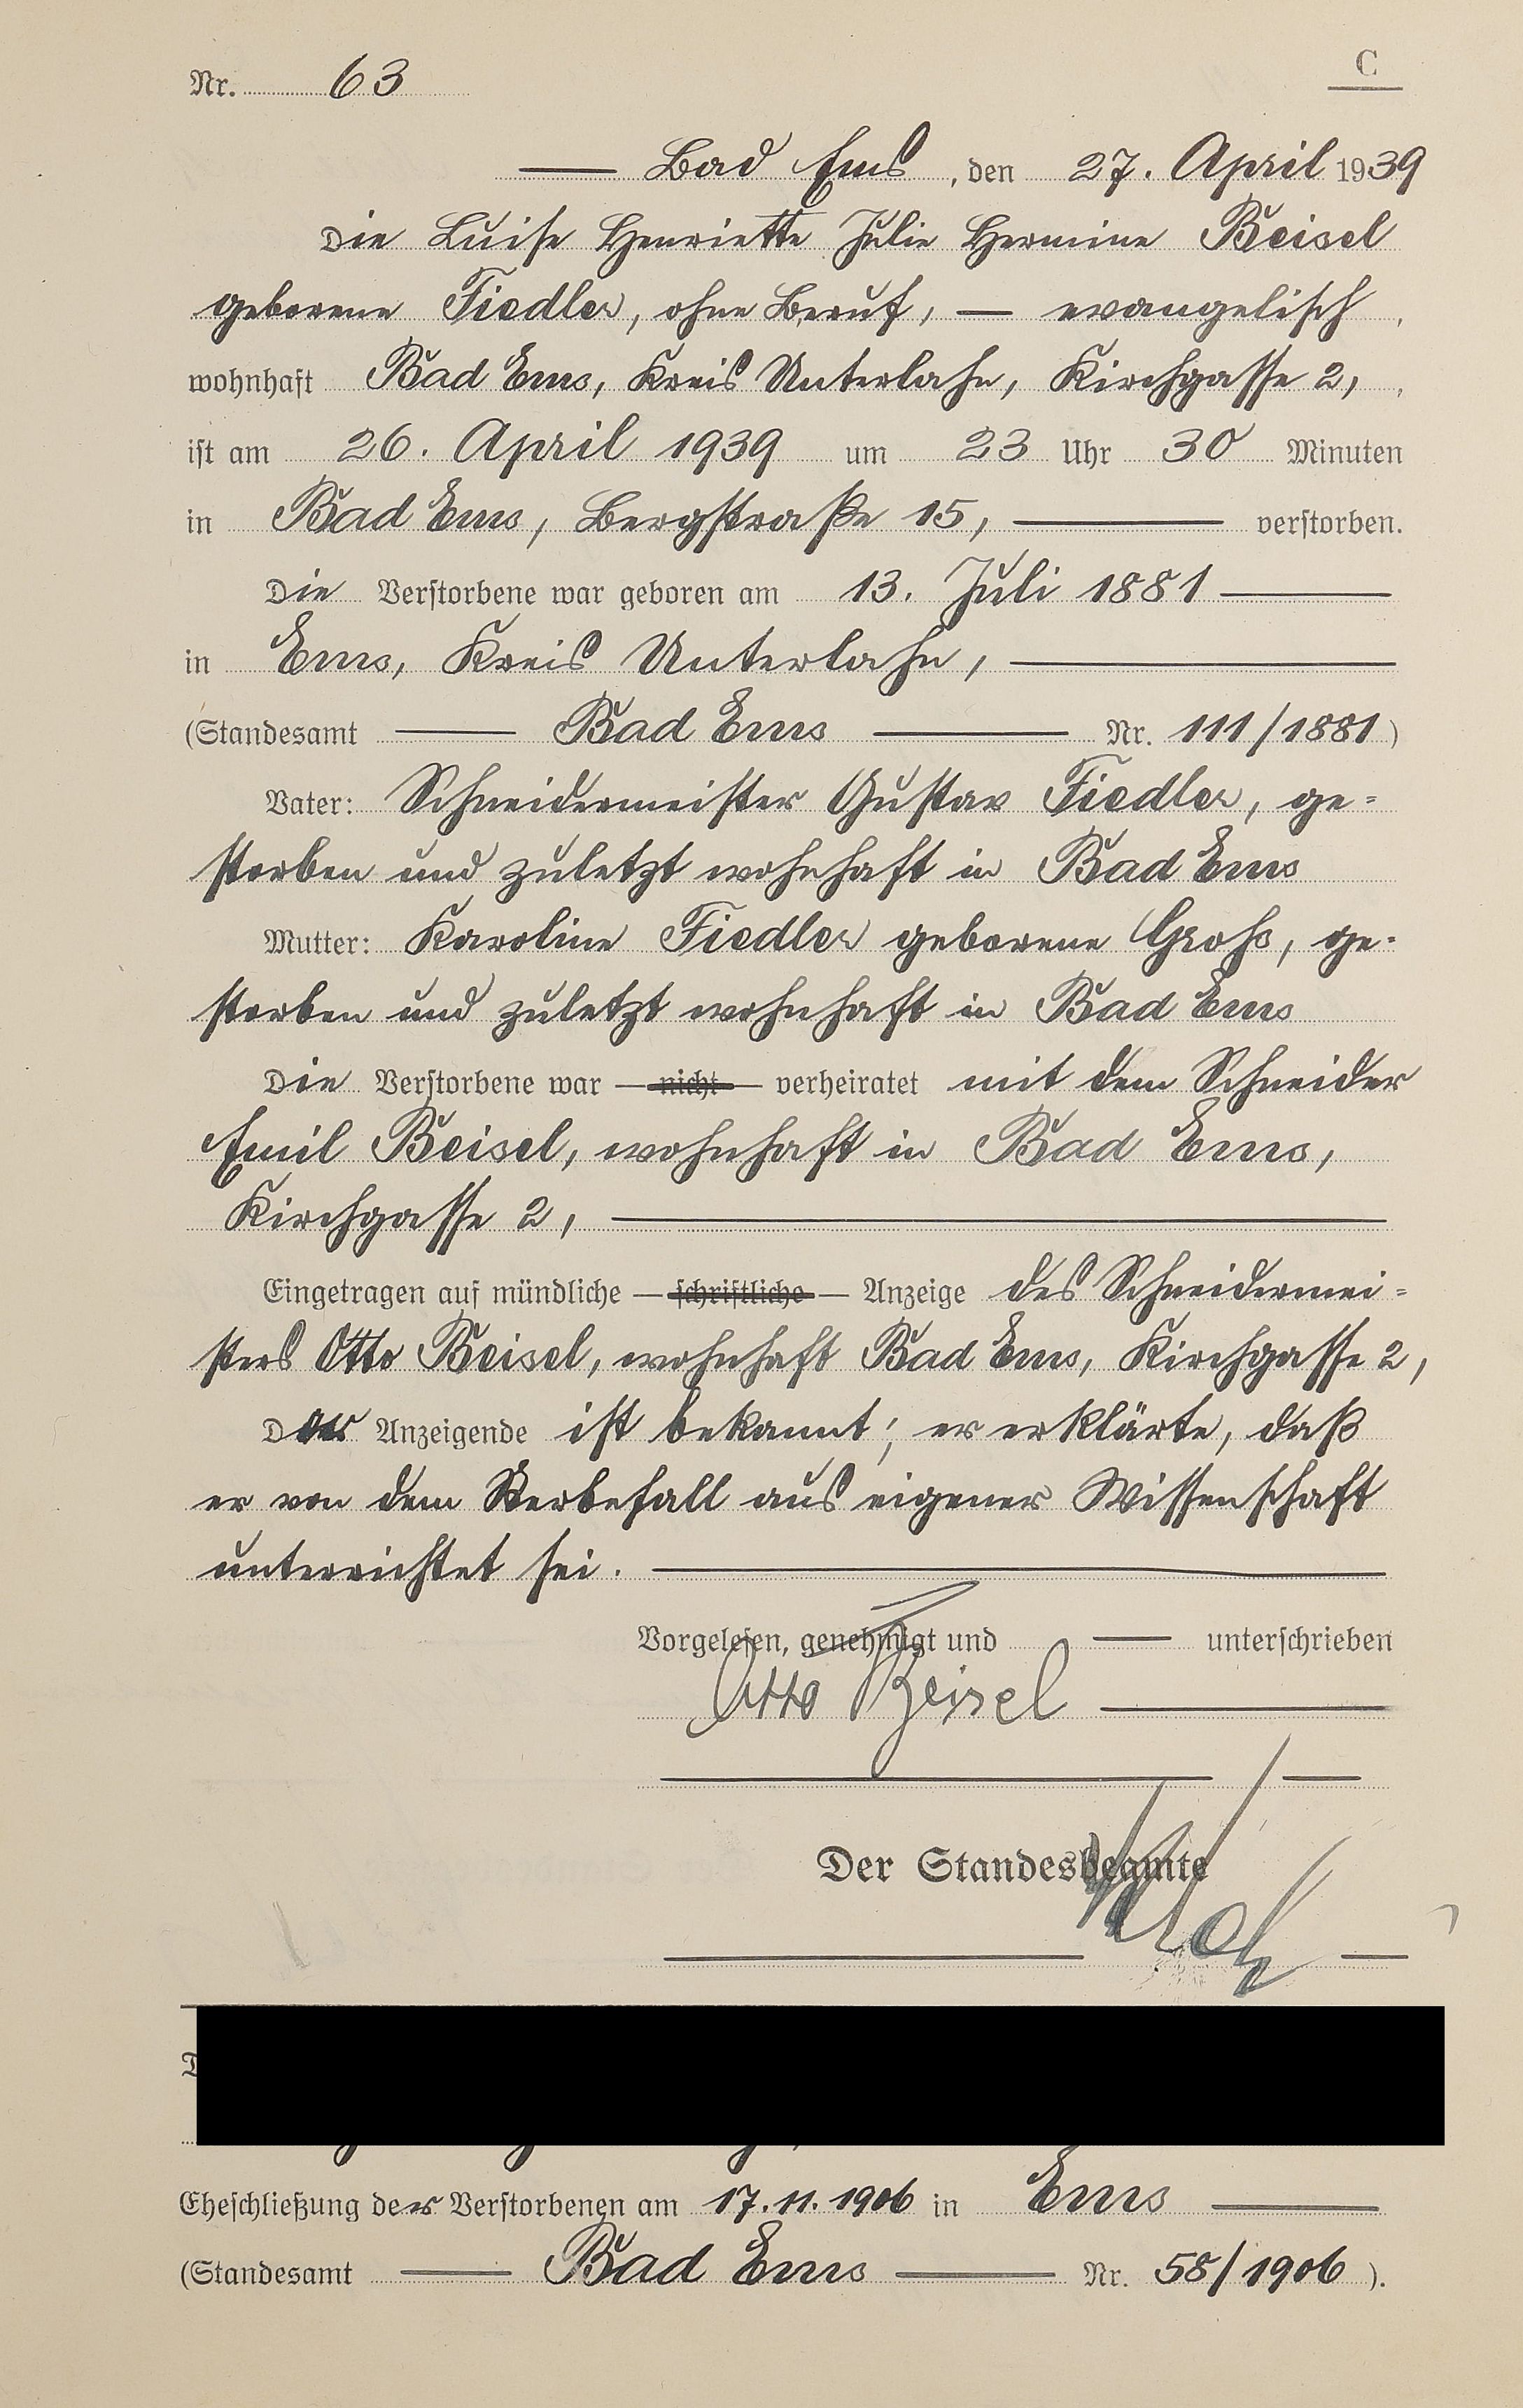 Nr. 63
C
Bad Ems, den 27. April 1939
Die Luise Henriette Julie Hermine Beisel
geborene Fiedler, ohne Beruf, — evangelisch,
wohnhaft Bad Ems, Kreis Unterlahn, Kirchgasse 2,
ist am 26. April 1939 um 23 Uhr 30 Minuten
in Bad Ems, Bergstraße 15, verstorben.
Die Verstorbene war geboren am 13. Juli 1881
in Ems, Kreis Unterlahn,
(Standesamt Bad Ems Nr. 111/1881)
Vater: Schneidermeister Gustav Fiedler, ge-
storben und zuletzt wohnhaft in Bad Ems
Mutter: Karoline Fiedler geborene Grohs, ge-
storben und zuletzt wohnhaft in Bad Ems
Die Verstorbene war — nicht — verheiratet mit dem Schneider
Emil Beisel, wohnhaft in Bad Ems,
Kirchgasse 2,
Eingetragen auf mündliche — schriftliche — Anzeige des Schneidermei-
sters Otto Beisel, wohnhaft Bad Ems, Kirchgasse 2,
Der Anzeigende ist bekannt; er erklärte, daß
er von dem Sterbefall aus eigener Wissenschaft
unterrichtet sei.
Vorgelesen, genehmigt und unterschrieben
Otto Beisel
Der Standesbeamte
Eheschließung der Verstorbenen am 17.11.1906 in Ems
(Standesamt Bad Ems Nr. 58/1906).